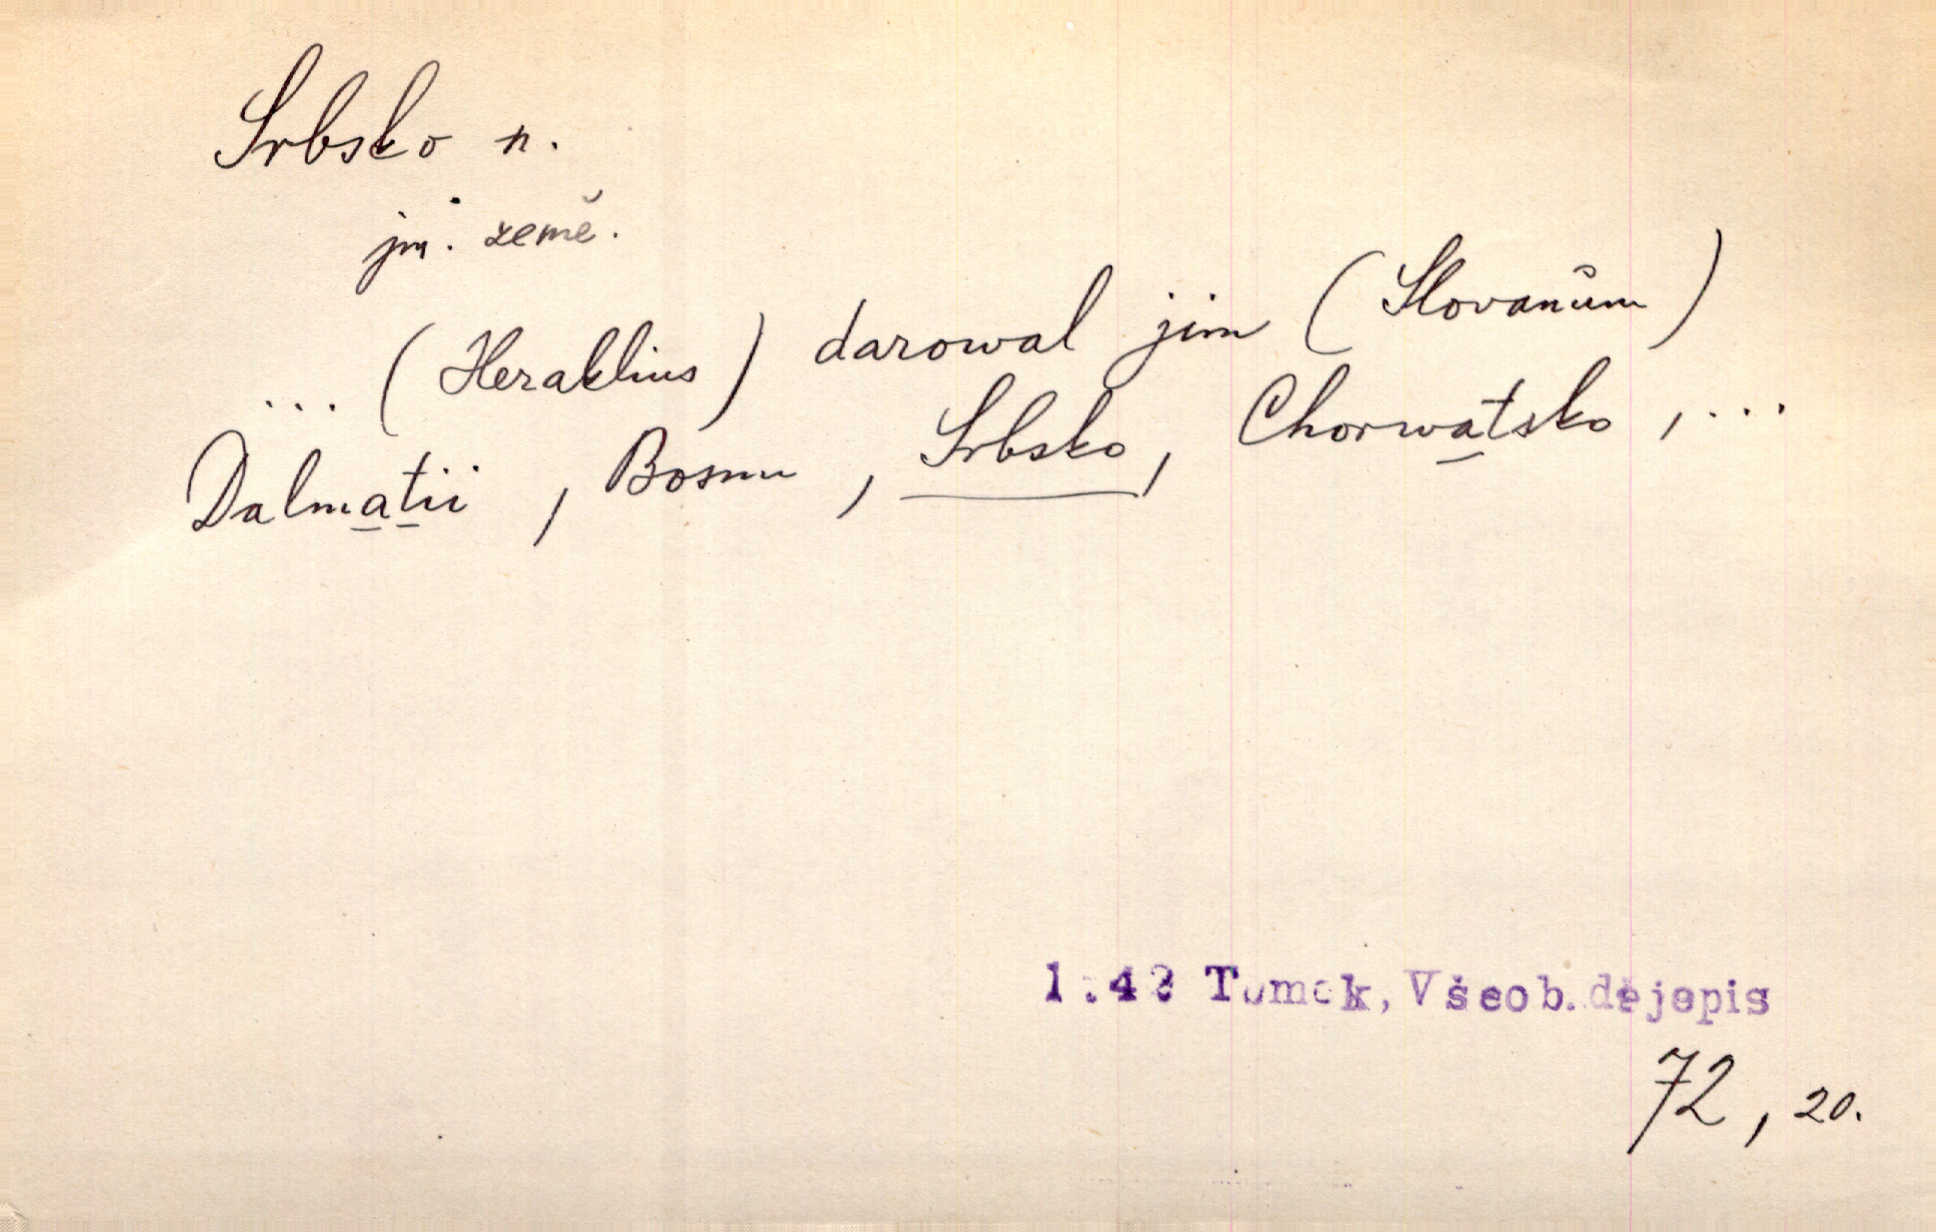 Srbsko n.
jm. země.
... (Heraklius) darowal jim (Slovanům)
Dalmatii, Bosnu, Srbsko, Chorwatsko, ...
Tomek, Všeob. dějepis
72, 20.